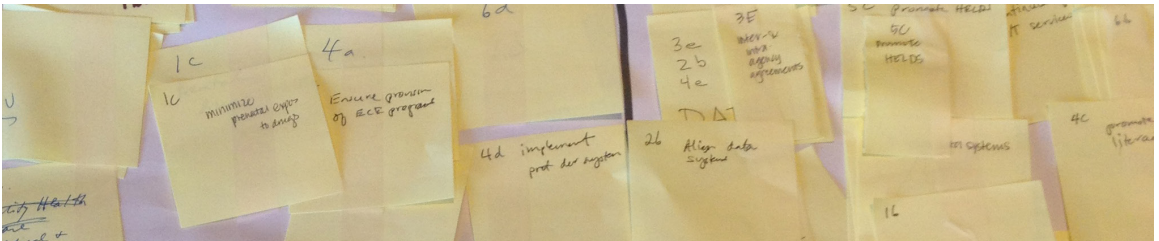 6a
1C
4a
1c
minimize
prenatal expos
to drugs
Ensure provision
of ECE programs
4d implement
prof dev system
3E
inter- &
intra
agency
agreements
3e
2b
4e
DAT
2b Align data
system
5C promote HELDS
5C
promote
HELDS
IT services
6b
systems
1b
4C promote
litera
Health